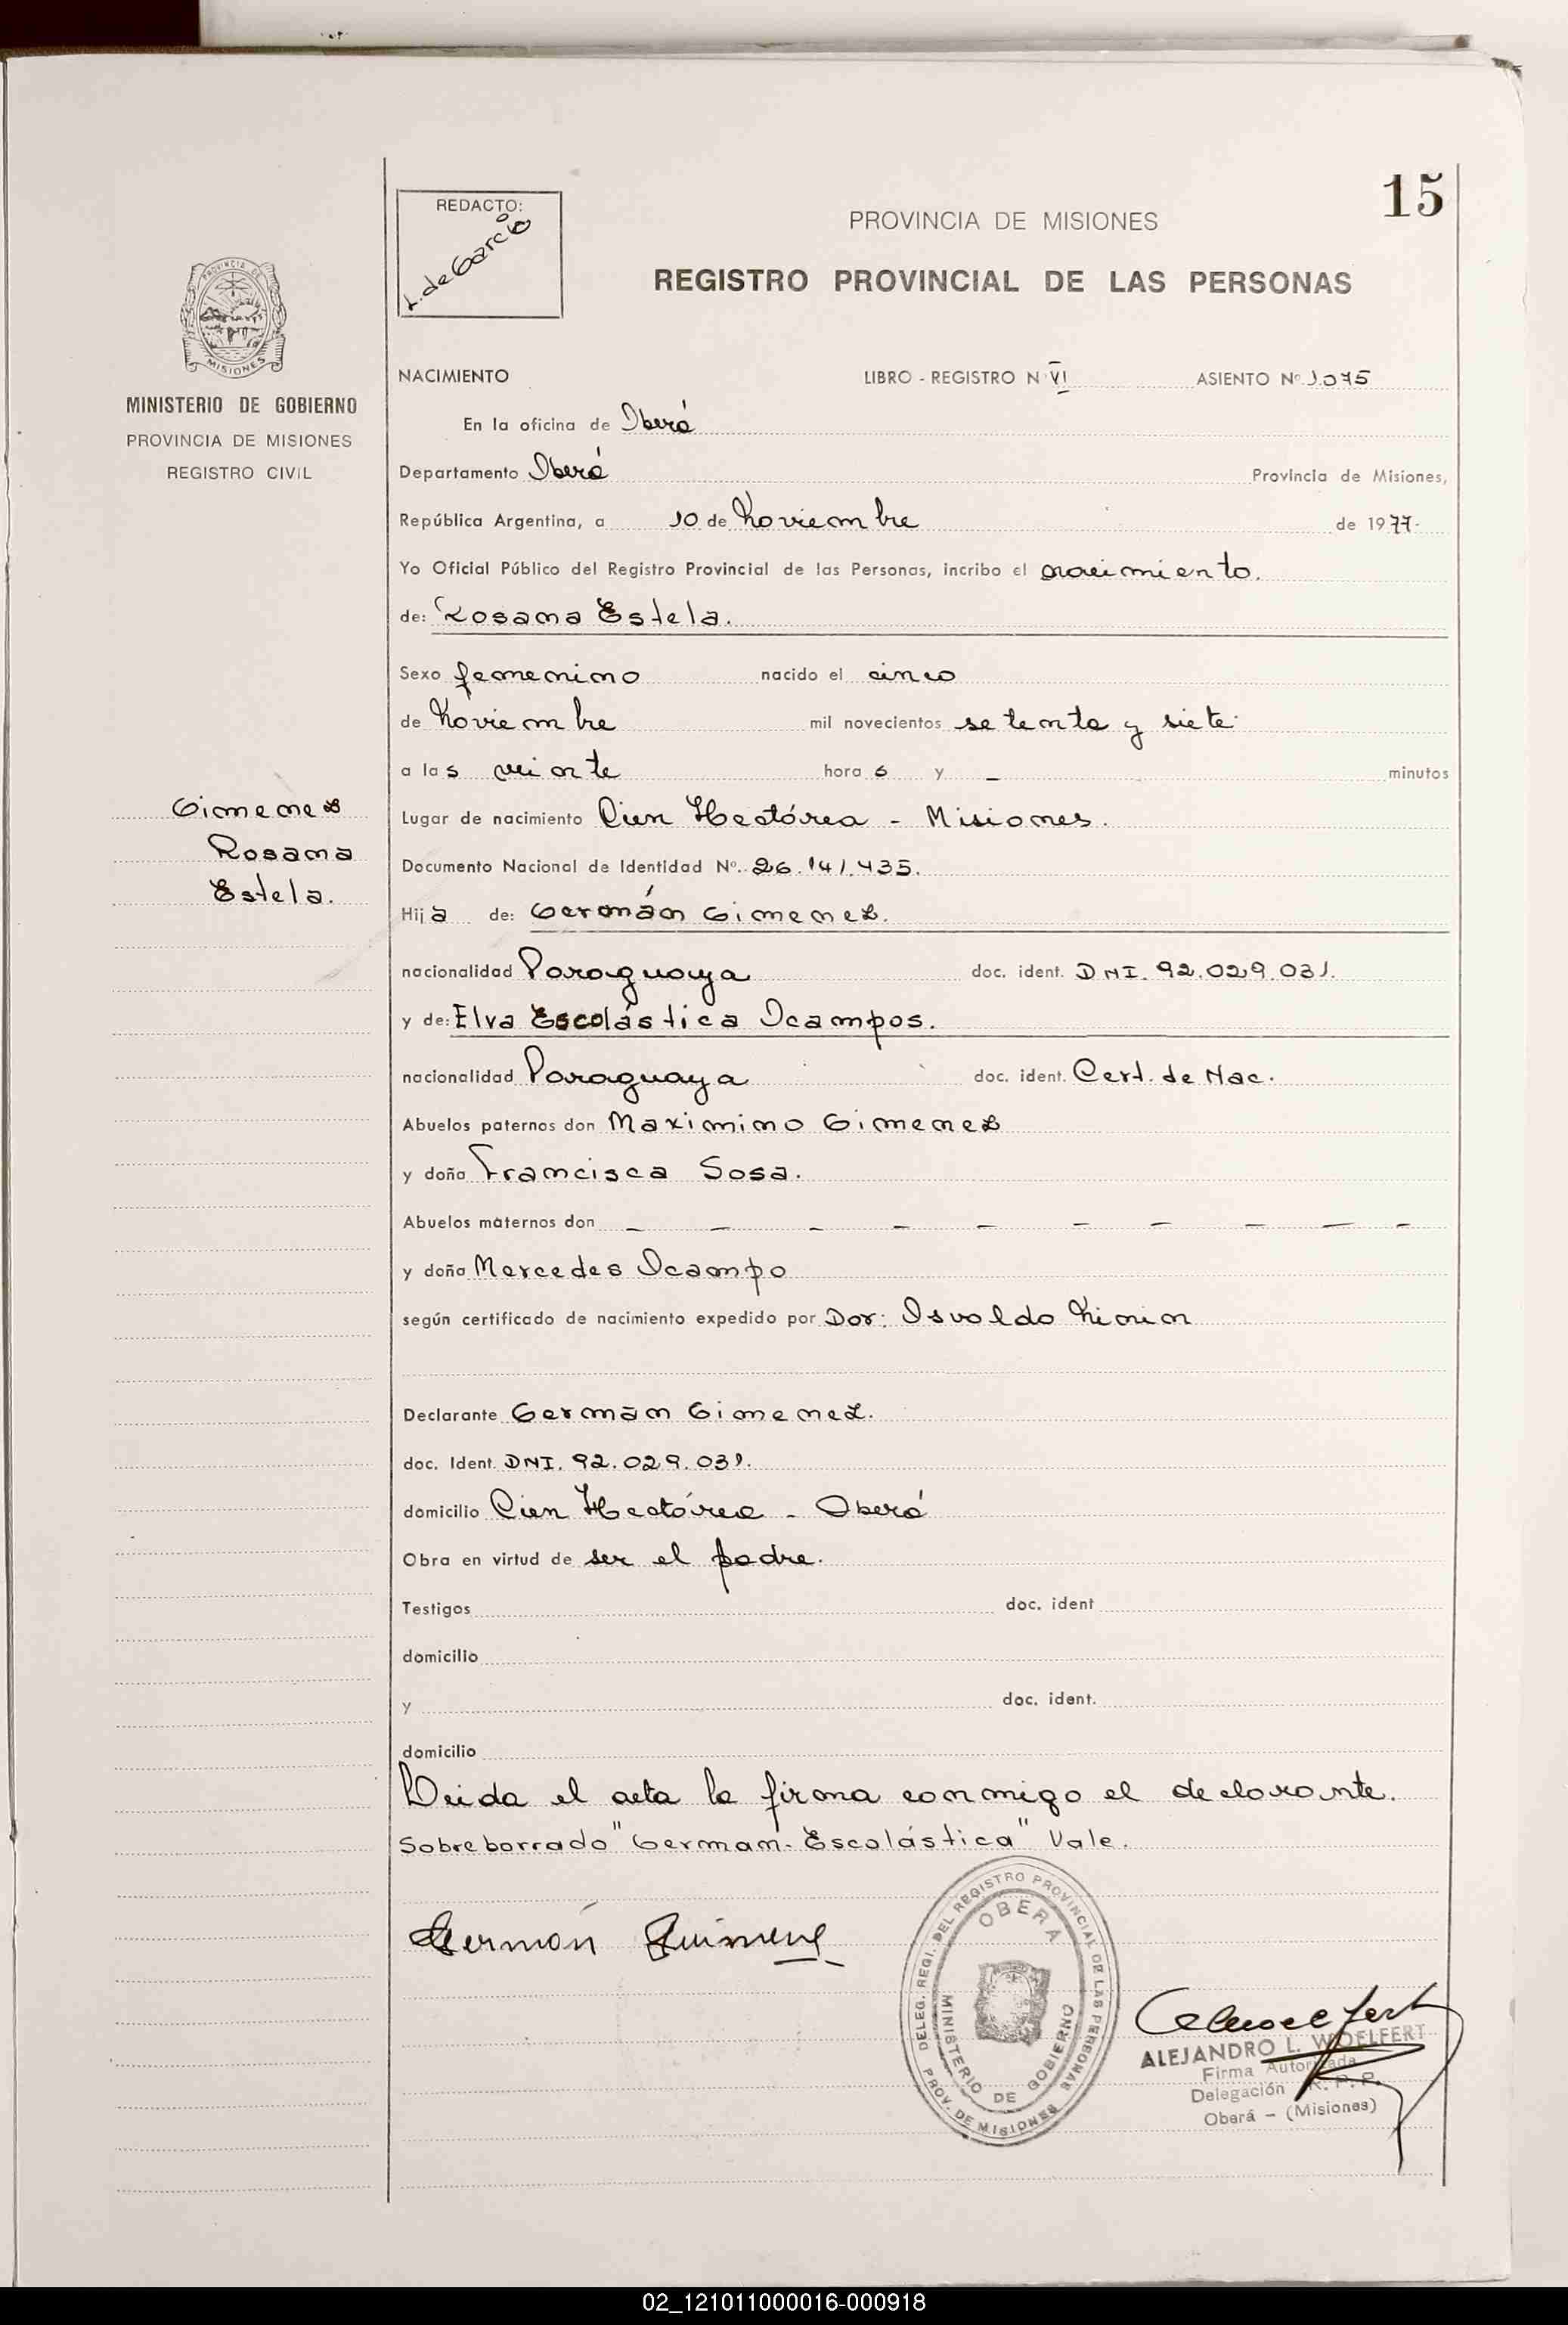 15
REDACTO:
L. de Garcia
PROVINCIA DE MISIONES
REGISTRO PROVINCIAL DE LAS PERSONAS
PROVINCIA DE
MISIONES
MINISTERIO DE GOBIERNO
PROVINCIA DE MISIONES
REGISTRO CIVIL
NACIMIENTO LIBRO - REGISTRO N VI ASIENTO Nº 1.075
En la oficina de Oberá
Departamento Oberá Provincia de Misiones,
República Argentina, a 10 de Noviembre de 1977.
Yo Oficial Público del Registro Provincial de las Personas, incribo el nacimiento.
de: Rosana Estela.
Sexo femenino nacido el cinco
de Noviembre mil novecientos setenta y siete
a las veinte hora s y — minutos
Gimenez
Rosana
Estela.
Lugar de nacimiento Cien Hectárea - Misiones.
Documento Nacional de Identidad Nº. 26.141.435.
Hija de: Germán Gimenez.
nacionalidad Paraguaya doc. ident. DNI. 92.029.031.
y de: Elva Escolástica Ocampos.
nacionalidad Paraguaya doc. ident. Cert. de Nac.
Abuelos paternos don Maximino Gimenez
y doña Francisca Sosa.
Abuelos maternos don — — — — — — — — — —
y doña Mercedes Ocampo
según certificado de nacimiento expedido por Dor: Osvaldo
Declarante Germán Gimenez.
doc. Ident. DNI. 92.029.031.
domicilio Cien Hectárea - Oberá
Obra en virtud de ser el padre.
Testigos doc. ident
domicilio
y doc. ident.
domicilio
Leida el acta la firma conmigo el declarante.
Sobreborrado "Germán - Escolástica" Vale.
Germán
DELEG. REGI. DEL REGISTRO PROVINCIAL DE LAS PERSONAS
PROV. DE MISIONES
OBERA
MINISTERIO DE GOBIERNO
ALEJANDRO L. WOELFERT
Firma Autorizada
Delegación R. P. P.
Oberá - (Misiones)
02_121011000016-000918